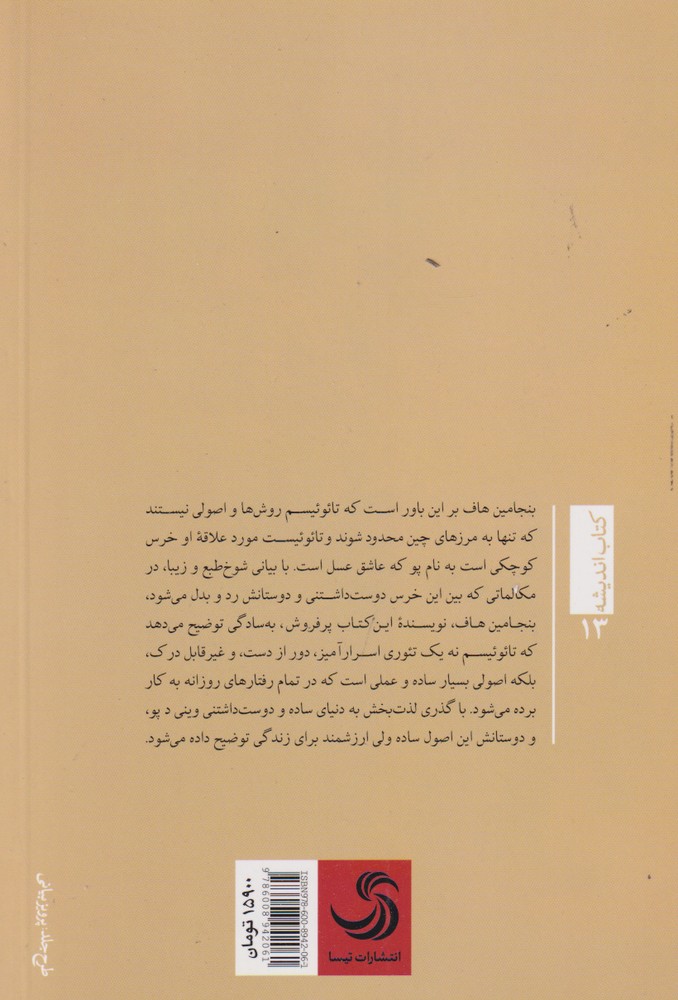 بنجامین هاف بر این باور است که تائوئیسم روش‌ها و اصولی نیستند
که تنها به مرزهای چین محدود شوند و تائوئیست مورد علاقهٔ او خرس
کوچکی است به نام پو که عاشق عسل است. با بیانی شوخ‌طبع و زیبا، در
مکالماتی که بین این خرس دوست‌داشتنی و دوستانش رد و بدل می‌شود،
بنجامین هاف، نویسندهٔ این کتاب پرفروش، به‌سادگی توضیح می‌دهد
که تائوئیسم نه یک تئوری اسرارآمیز، دور از دست، و غیرقابل درک،
بلکه اصولی بسیار ساده و عملی است که در تمام رفتارهای روزانه به کار
برده می‌شود. با گذری لذت‌بخش به دنیای ساده و دوست‌داشتنی وینی د پو،
و دوستانش این اصول ساده ولی ارزشمند برای زندگی توضیح داده می‌شود.
کتاب اندیشه
۱۳
انتشارات تیسا
ISBN978-600-8942-06-1
9786008942061
۱۵۹۰۰ تومان
طرح جلد: پرویز بیانی